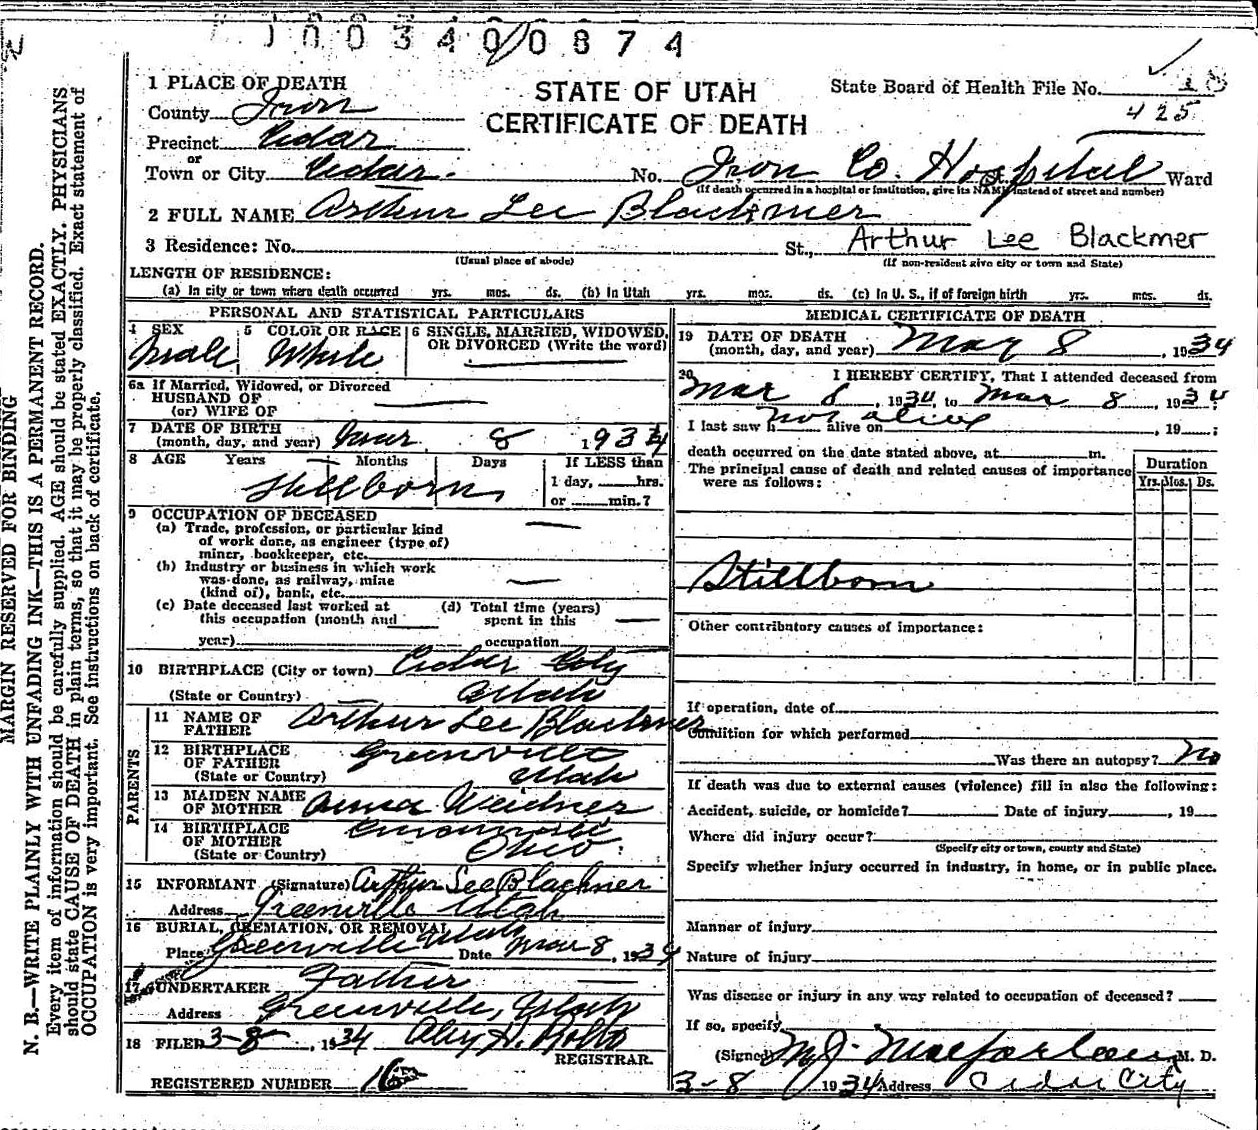 1003400874
STATE OF UTAH
CERTIFICATE OF DEATH
State Board of Health File No. 18
425
1 PLACE OF DEATH
County Iron
Precinct Cedar
or
Town or City Cedar. No. Iron Co. Hospital Ward
(If death occurred in a hospital or institution, give its NAME instead of street and number)
2 FULL NAME Arthur Lee Blackmer
3 Residence: No. St., Arthur Lee Blackmer
(Usual place of abode) (If non-resident give city or town and State)
LENGTH OF RESIDENCE:
(a) In city or town where death occurred yrs. mos. ds. (b) In Utah yrs. mos. ds. (c) In U. S., if of foreign birth yrs. mos. ds.
PERSONAL AND STATISTICAL PARTICULARS
4 SEX 5 COLOR OR RACE 6 SINGLE, MARRIED, WIDOWED,
OR DIVORCED (Write the word)
Male White —
6a If Married, Widowed, or Divorced
HUSBAND OF
(or) WIFE OF —
7 DATE OF BIRTH
(month, day, and year) Mar. 8 1934
8 AGE Years Months Days If LESS than
1 day, hrs.
or min.?
Stillborn
9 OCCUPATION OF DECEASED
(a) Trade, profession, or particular kind
of work done, as engineer (type of)
miner, bookkeeper, etc. —
(b) Industry or business in which work
was done, as railway, mine
(kind of), bank, etc. —
(c) Date deceased last worked at (d) Total time (years)
this occupation (month and spent in this —
year) occupation
10 BIRTHPLACE (City or town) Cedar City
(State or Country) Utah
PARENTS
11 NAME OF
FATHER Arthur Lee Blackmer
12 BIRTHPLACE
OF FATHER Greenville
(State or Country) Utah
13 MAIDEN NAME
OF MOTHER Anna Weidner
14 BIRTHPLACE
OF MOTHER
(State or Country) Ohio
15 INFORMANT (Signature) Arthur Lee Blackmer
Address Greenville Utah
16 BURIAL, CREMATION, OR REMOVAL
Place Greenville Utah Date Mar 8, 1934
17 UNDERTAKER Father
Address Greenville, Utah
18 FILED 3-8, 1934
REGISTRAR.
REGISTERED NUMBER 16
MEDICAL CERTIFICATE OF DEATH
19 DATE OF DEATH
(month, day, and year) Mar 8, 1934
20 I HEREBY CERTIFY, That I attended deceased from
Mar 8, 1934 to Mar 8, 1934;
I last saw h not alive alive on , 19 ;
death occurred on the date stated above, at m.
The principal cause of death and related causes of importance
were as follows:
Duration
Yrs. Mos. Ds.
Stillborn
Other contributory causes of importance:
If operation, date of
Condition for which performed
Was there an autopsy? No
If death was due to external causes (violence) fill in also the following:
Accident, suicide, or homicide? Date of injury , 19
Where did injury occur?
(Specify city or town, county and State)
Specify whether injury occurred in industry, in home, or in public place.
Manner of injury
Nature of injury
Was disease or injury in any way related to occupation of deceased?
If so, specify
(Signed) M J. Macfarlane M. D.
3-8 1934 Address Cedar City
MARGIN RESERVED FOR BINDING
N. B.—WRITE PLAINLY WITH UNFADING INK—THIS IS A PERMANENT RECORD.
Every item of information should be carefully supplied. AGE should be stated EXACTLY. PHYSICIANS
should state CAUSE OF DEATH in plain terms, so that it may be properly classified. Exact statement of
OCCUPATION is very important. See instructions on back of certificate.